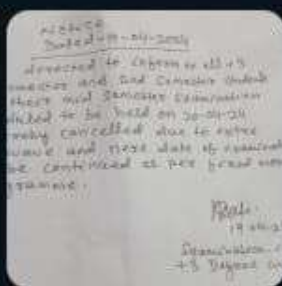 Notice
Dated - 19-04-2024
directed to inform to all +3
Semester and 2nd Semester Students
their mid Semester Examination
to be held on 20-04-24
cancelled due to extre
wave and next date of examinat
be continued as per fixed
gramme.
19.04.2
Examination
+3 Degree